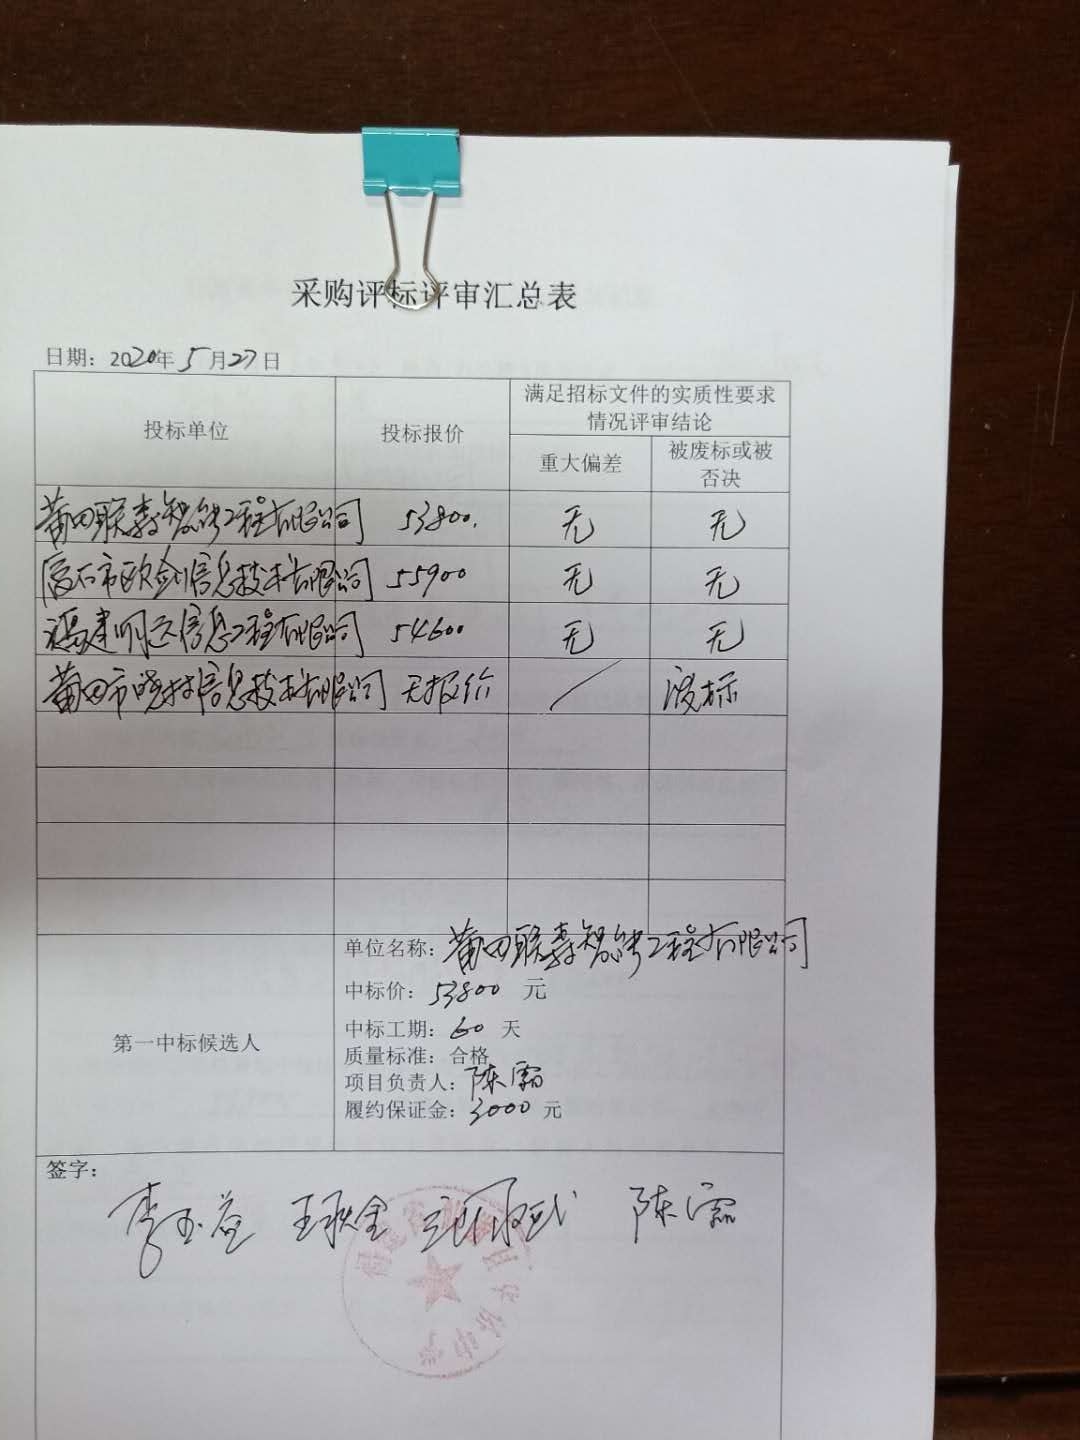 采购评标评审汇总表
日期：2020年5月27日
投标单位 投标报价 满足招标文件的实质性要求情况评审结论
重大偏差 被废标或被否决
莆田联森智能工程有限公司 53800. 无 无
石市欧剑信息技术有限公司 55900 无 无
福建明达信息工程有限公司 54600 无 无
莆田市晓林信息技术有限公司 无报价 / 废标
第一中标候选人
单位名称：莆田联森智能工程有限公司
中标价：53800 元
中标工期：60 天
质量标准：合格
项目负责人：陈霜
履约保证金：3000 元
签字：
李玉益 王秋金 陈霜
福建省莆田